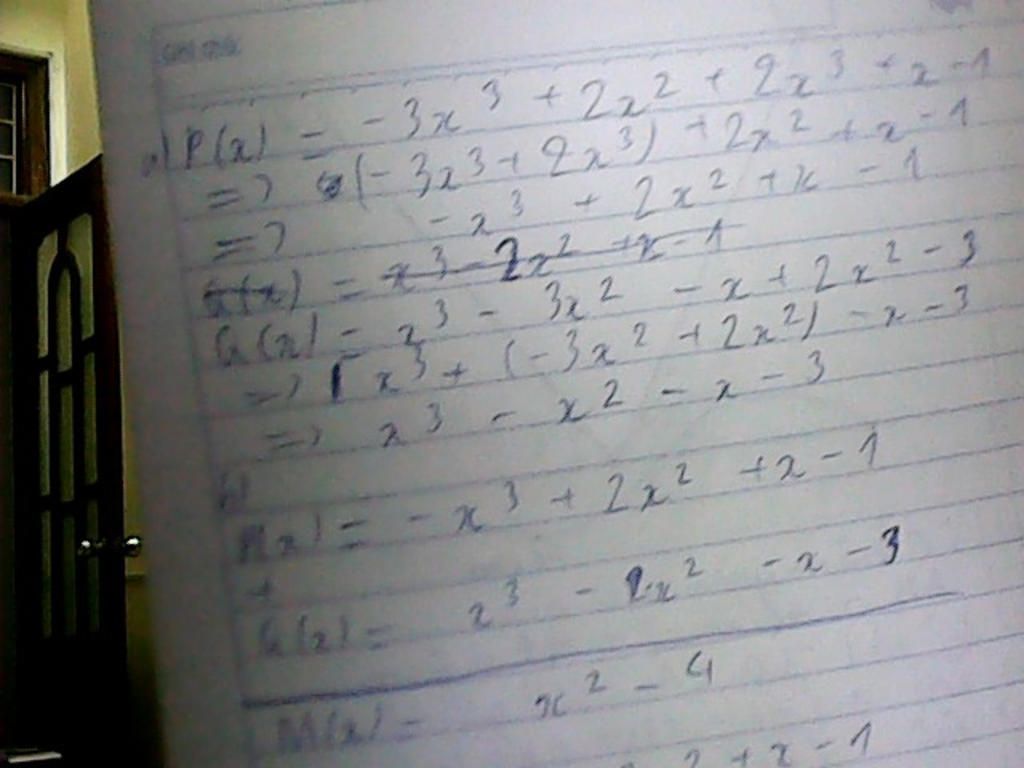 a) P(x) = -3x³ + 2x² + 2x³ + x - 1
=> (-3x³ + 2x³) + 2x² + x - 1
=> -x³ + 2x² + x - 1
G(x) = x³ - 2x² + x - 1
G(x) = x³ - 3x² - x + 2x² - 3
=> x³ + (-3x² + 2x²) - x - 3
=> x³ - x² - x - 3
b)
P(x) = -x³ + 2x² + x - 1
+
G(x) = x³ - 1x² - x - 3
M(x) = x² - 4
² + x - 1